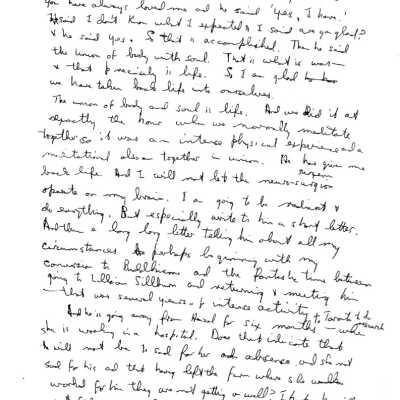 you have always loved me and he said 'Yes, I have.'
I said I don't know what I expected & I said are you glad?
& he said yes. So that is accomplished. Then he said
the union of body with soul. That is what is was—
& that precisely is life. So I am glad
we have taken back life into ourselves.
The union of body and soul is life. And we did it at
exactly the hour when we normally meditate
together so it was an intense physical experience and a
meditational also together in union. He has given me
back life And I will not let the neurosurgeon
operate on my brain. I am going to be radiant &
do everything. But especially write to him a short letter.
And then a long long letter telling him about all my
circumstances perhaps beginning with my
conversion to Buddhism and the fantastic time between
going to Lillian Silburn and returning & meeting him
— that was several years of intense activity to Toronto & research
And he is going away from Hazel for six months — while
she is working in a hospital. Does that indicate that
I will not be so sad for her absence, and she not
sad for his and that having left the farm where she
worked for him they are not getting on well? I